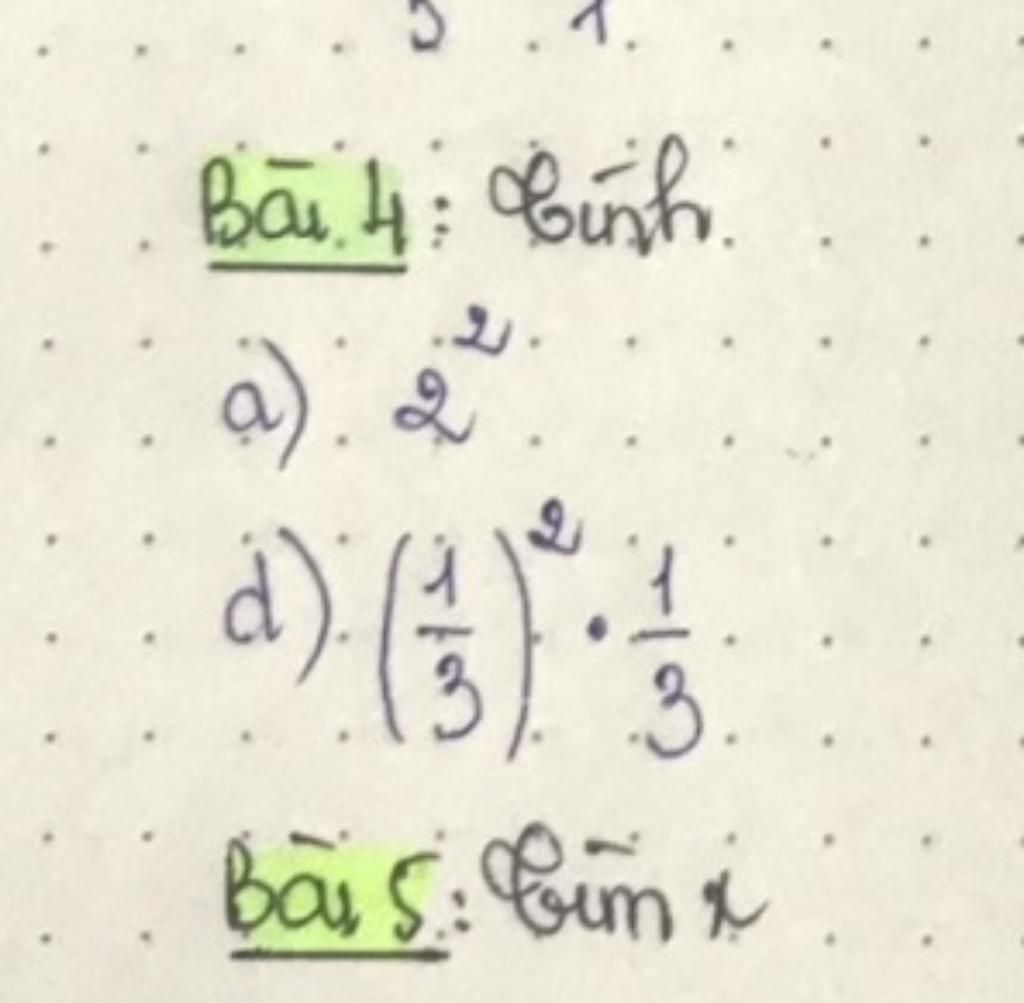 Bài 4: Tính
a) 2²
d) (1/3)² · 1/3
Bài 5: Tìm x